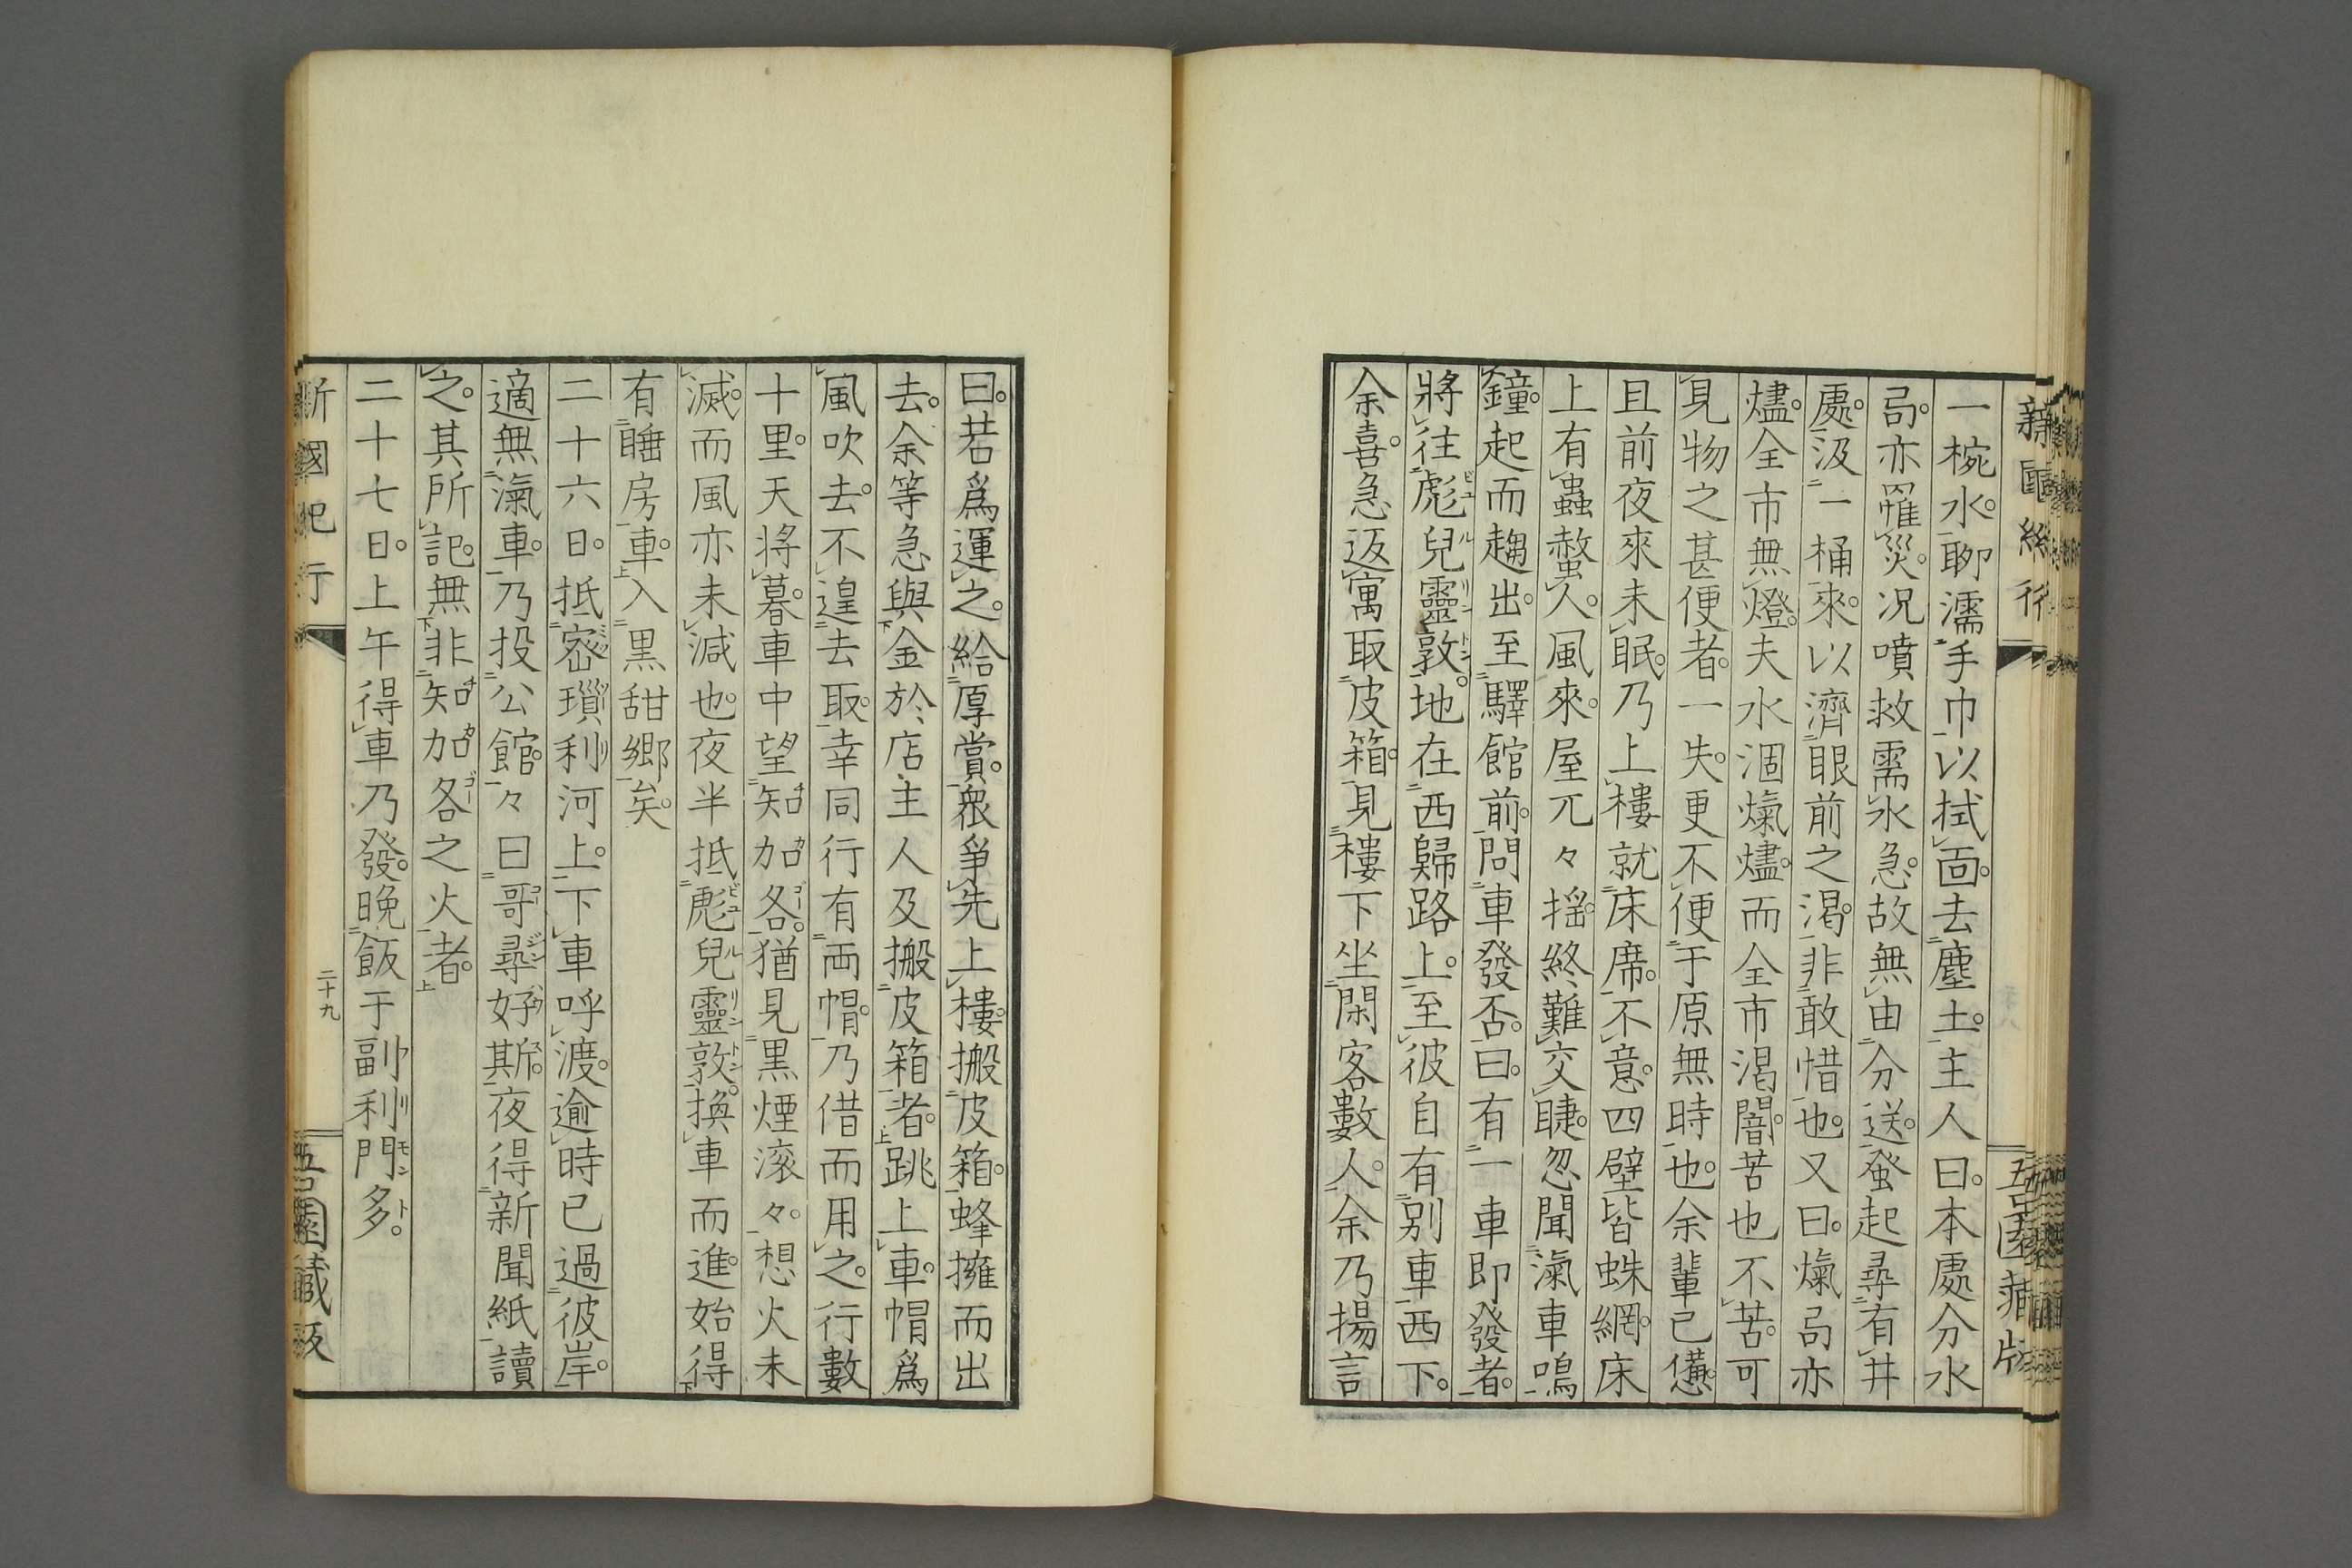 一椀水。聊濡手巾以拭面。去塵土。主人曰。本處分水
局。亦罹災。況噴救需水急。故無由分送。蚤起尋有井
處。汲一桶來。以濟眼前之渴。非敢惜也。又曰。燭局亦
燼。全市無燈。夫水涸燭燼。而全市渴闇。苦也不苦。可
見物之甚便者。一失。更不便于原無時也。余輩已憊。
且前夜來未眠。乃上樓就床席。不意。四壁皆蛛網。床
上有蟲螫人。風來。屋兀々搖。終難交睫。忽聞滊車鳴
鐘。起而趨出。至驛館前。問車發否。曰。有一車即發者。
將往彪兒靈敦。地在西歸路上。至彼自有別車西下。
余喜。急返寓取皮箱。見樓下坐閑客數人。余乃揚言
曰。若爲運之。給厚賞。衆爭先上樓。搬皮箱。蜂擁而出
去。余等急與金於店主人及搬皮箱者。跳上車。帽爲
風吹去。不遑去取。幸同行有両帽。乃借而用之。行數
十里。天將暮。車中望知加各。猶見黒煙滾々。想火未
滅。而風亦未減也。夜半抵彪兒靈敦。換車而進。始得
有睡房車。入黒甜郷矣。
二十六日。抵密瑣利河上。下車呼渡。逾時已過彼岸。
適無滊車。乃投公館。々曰哥尋好斯。夜得新聞紙讀
之。其所記。無非知加各之火者。
二十七日。上午得車乃發。晩飯于副利門多。
新國紀行
二十九
吾園藏版